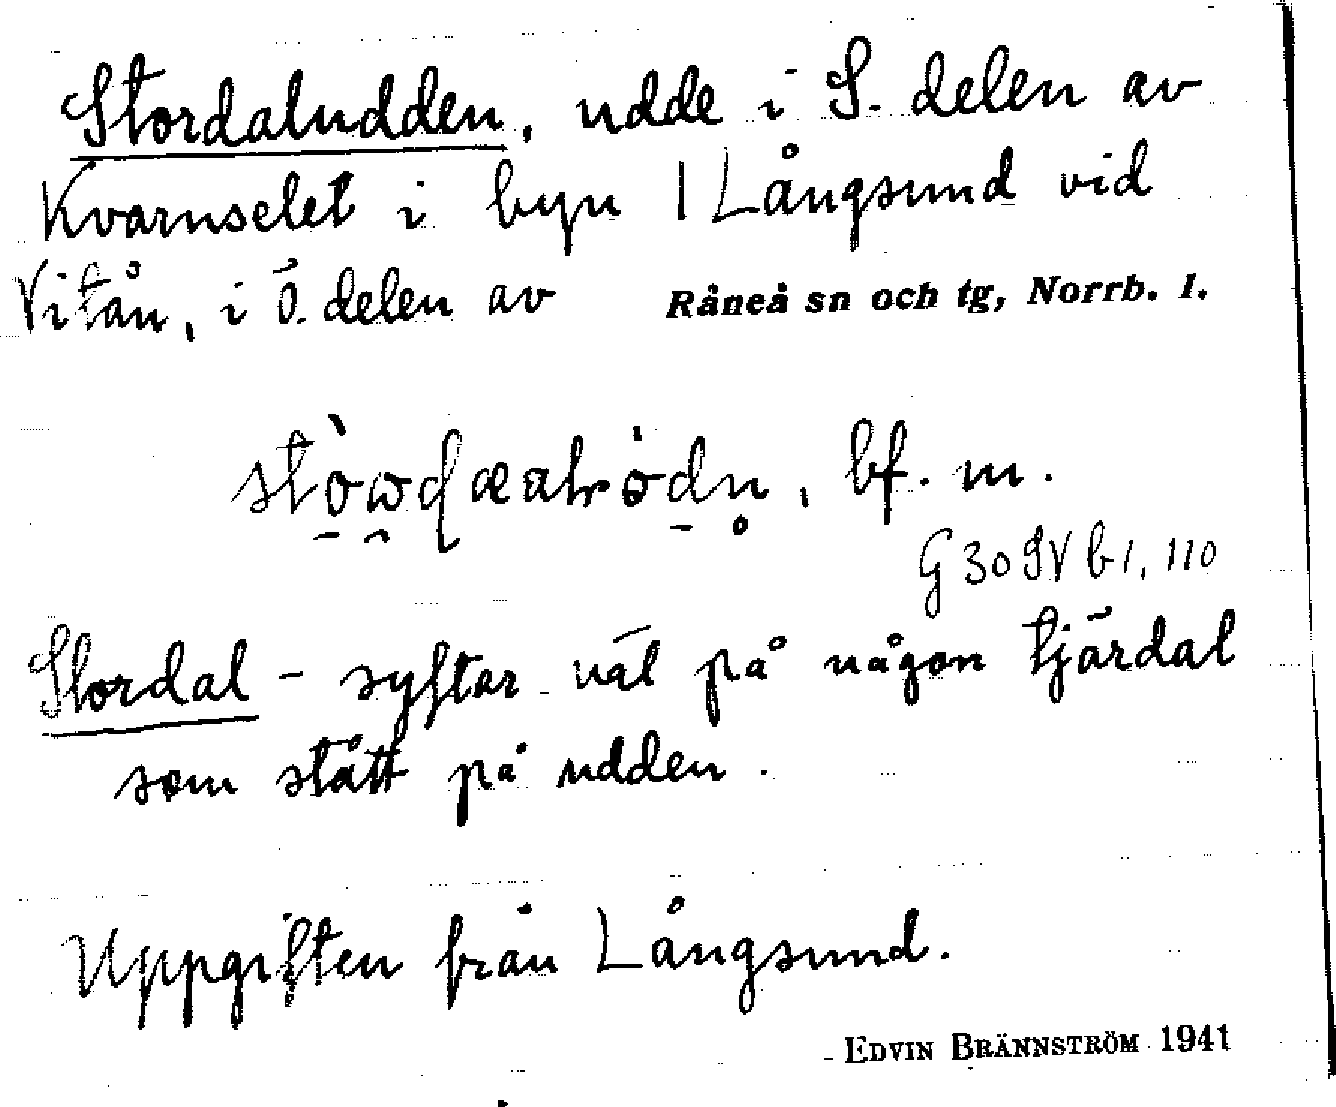 Stordaludden, udde i S. delen av
Kvarnselet i byn 1 Långsund vid
Vitån, i Ö. delen av Råneå sn och tg, Norrb. l.
bf. m.
G 30 IV b 1, 110
Stordal - syftar väl på någon tjärdal
som stått på udden.
Uppgiften från Långsund.
EDVIN BRÄNNSTRÖM 1941